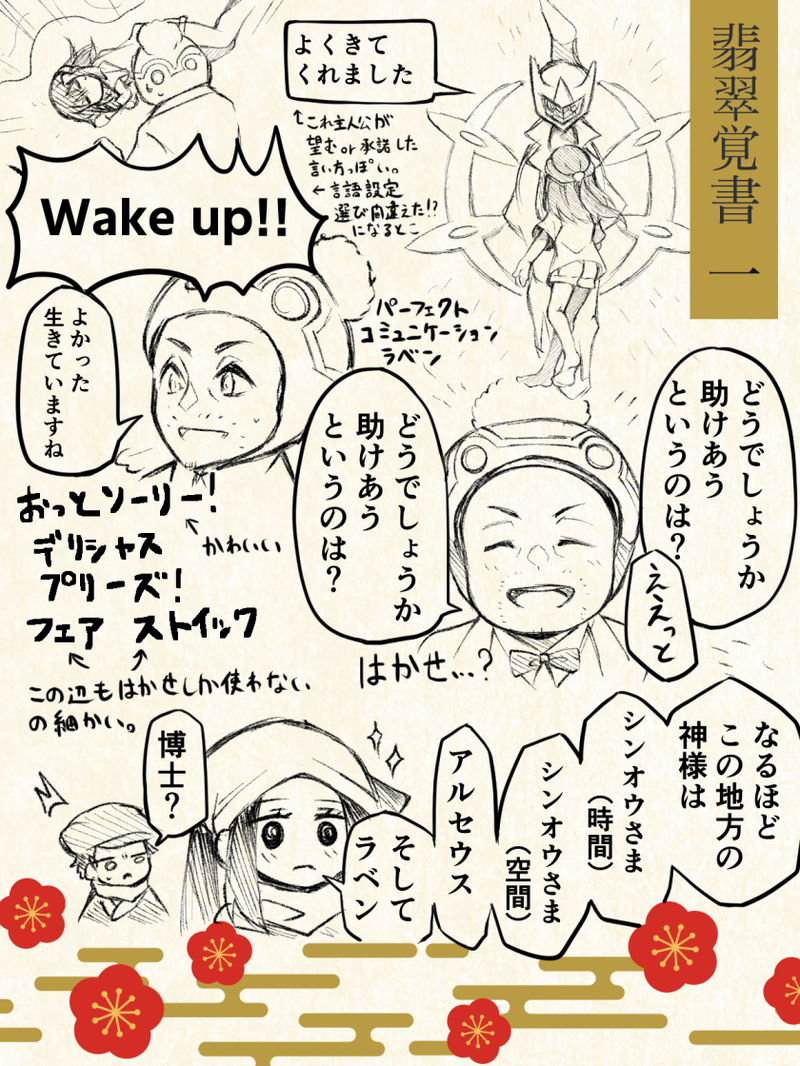 翡翠覚書 一
よくきて
くれました
↑これ主人公が
望むor承諾した
言い方っぽい。
←言語設定
選び間違えた!?
になるとこ
Wake up!!
よかった
生きていますね
パーフェクト
コミュニケーション
ラベン
どうでしょうか
助けあう
というのは？
ええっと
どうでしょうか
助けあう
というのは？
はかせ…？
おっとソーリー!
デリシャス
プリーズ!
フェア ストイック
かわいい
この辺もはかせしか使わない
の細かい。
なるほど
この地方の
神様は
シンオウさま
（時間）
シンオウさま
（空間）
アルセウス
そして
ラベン
博士？